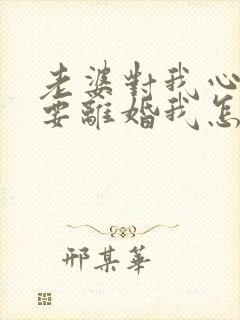 老婆對我心
要離婚我怎
邢某華